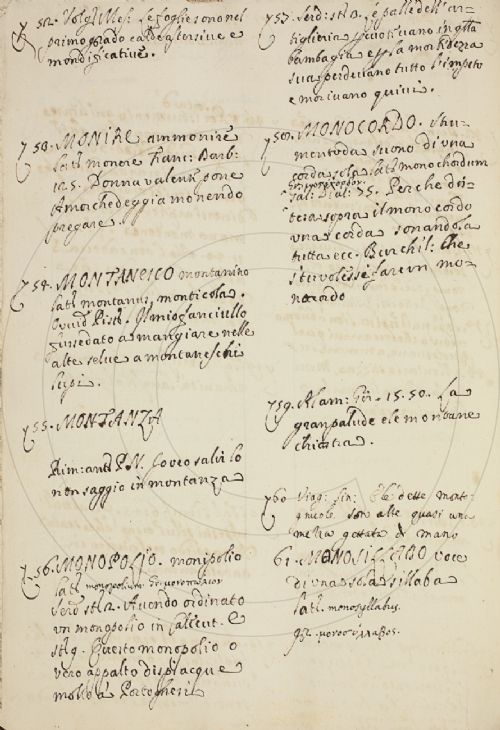 752. Volg: Mes: Le foglie sono nel
primo grado calde astersive e
mondificative.
753. MONIRE ammonire
Lat. monere Franc: Barb:
125. Donna valente pone
Amor che deggia monendo
pregare.
754. MONTANESCO montanino
Lat. montanus, monticola.
Ovid: Pist. Il mio fanciullo
fu usato a mangiare nelle
alte selve a montaneschi
755. MONTANZA
Rim: ant. P. N. Loveo salvi lo
non saggio in montanza
756. MONOPOLIO. monipolio
Lat. monopolium Gr. μονοπώλιον
Serd. st. 2. Avendo ordinato
un monopolio in Calicut. E
st. 9. Questo monopolio o
vero appalto dispiacque
molto a Portoghesi
757. Serd: st. 13. e palle dell'ar-
tiglieria percotivano in
bambagia e p. la morbidezza
sua perdevano tutto l'impeto
e morivano quivi.
758. MONOCORDO. Stru-
mento da suono di una
corda sola Lat. monochordum
Gal: Dial: 55. Perche di-
tesa sopra il monocordo
una corda sonandola
tutta ecc. Burchil: Che
s'tu volesse fare un mo-
nocordo
759. Alam: Gir. 15. 50. La
gran palude ele montane
chiostra.
760 Viagg: Sin: E le dette monta-
gnuole son alte quasi una
melia gettata di mano
61. MONOSILLABO voce
di una sola sillaba
Lat. monosyllabus.
Gr. μονοσύλλαβος.